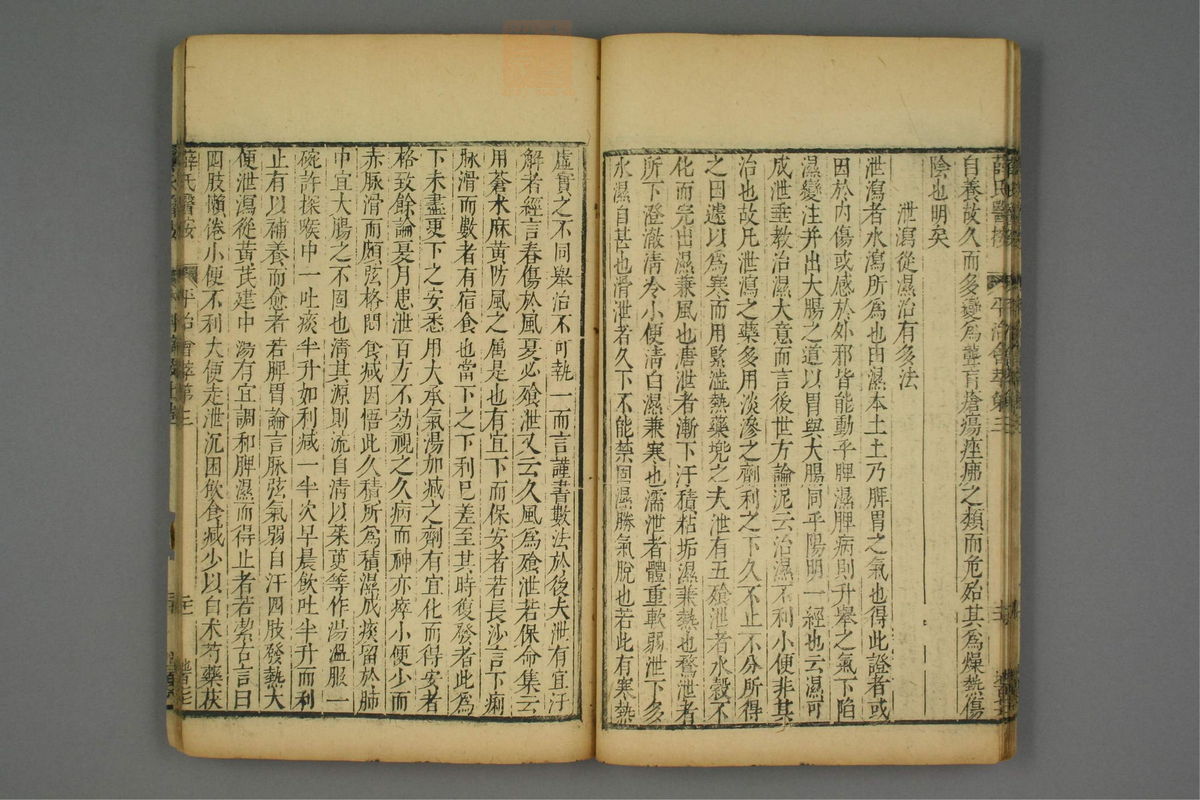 薛氏醫按 平治會萃第三
自養設久而多變爲聾盲瘡瘍痤疿之類而危殆其爲燥熱傷
陰也明矣
泄瀉從濕治有多法
泄瀉者水瀉所爲也由濕本土土乃脾胃之氣也得此證者或
因於內傷或感於外邪皆能動乎脾濕脾病則升舉之氣下陷
濕變注并出大腸之道以胃與大腸同乎陽明一經也云濕可
成泄垂教治濕大意而言後世方論泥云治濕不利小便非其
治也故凡泄瀉之藥多用淡滲之劑利之下久不止不分所得
之因遽以爲寒而用緊澁熱藥兠之夫泄有五飱泄者水穀不
化而完出濕兼風也唐泄者漸下汙積粘垢濕兼熱也鶩泄者
所下澄澈淸冷小便淸白濕兼寒也濡泄者體重軟弱泄下多
水濕自甚也滑泄者久下不能禁固濕勝氣脫也若此有寒熱
虛實之不同舉治不可執一而言謹書數法於後夫泄有宜汗
解者經言春傷於風夏必飱泄又云久風爲飱泄若保命集云
用蒼朮麻黃防風之属是也有宜下而保安者若長沙言下痢
脉滑而數者有宿食也當下之下利已差至其時復發者此爲
下未盡更下之安悉用大承氣湯加減之劑有宜化而得安者
格致餘論夏月患泄百方不効視之久病而神亦瘁小便少而
赤脉滑而頗弦格悶食減因悟此久積所爲積濕成痰留於肺
中宜大腸之不固也淸其源則流自淸以茱萸等作湯溫服一
碗許探喉中一吐痰半升如利減一半次早晨飲吐半升而利
止有以補養而愈者若脾胃論言脉弦氣弱自汗四肢發熱大
便泄瀉從黃芪建中湯有宜調和脾濕而得止者若潔古言曰
四肢懶倦小便不利大便走泄沉困飲食減少以白朮芍藥茯
薛氏醫按 平治會萃第三